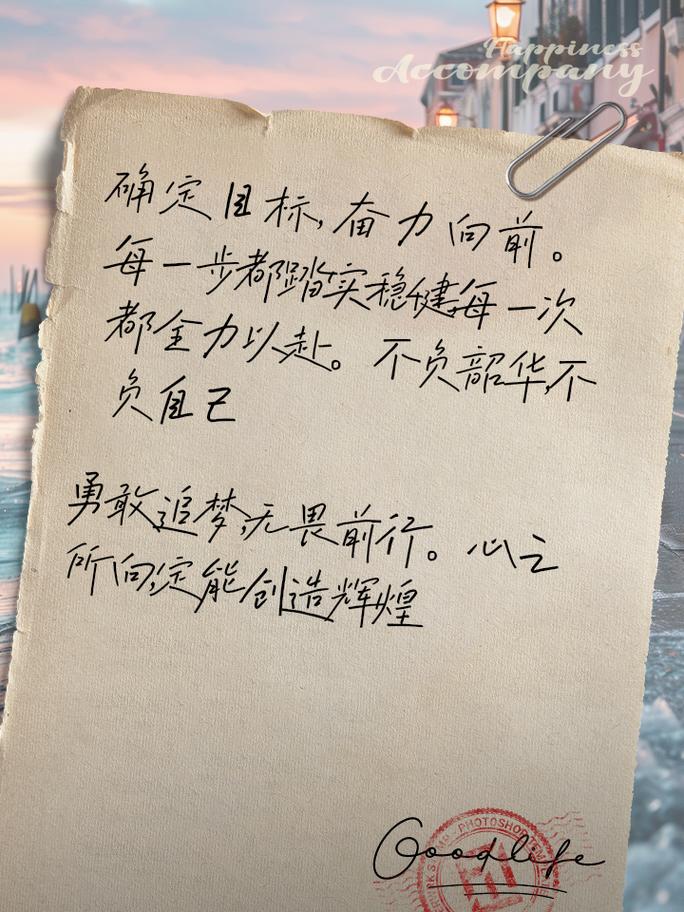 Happiness
Accompany
确定目标,奋力向前。
每一步都踏实稳健,每一次
都全力以赴。不负韶华,不
负自己
勇敢追梦,无畏前行。心之
所向,定能创造辉煌
PHOTOSHOP
Goodlife